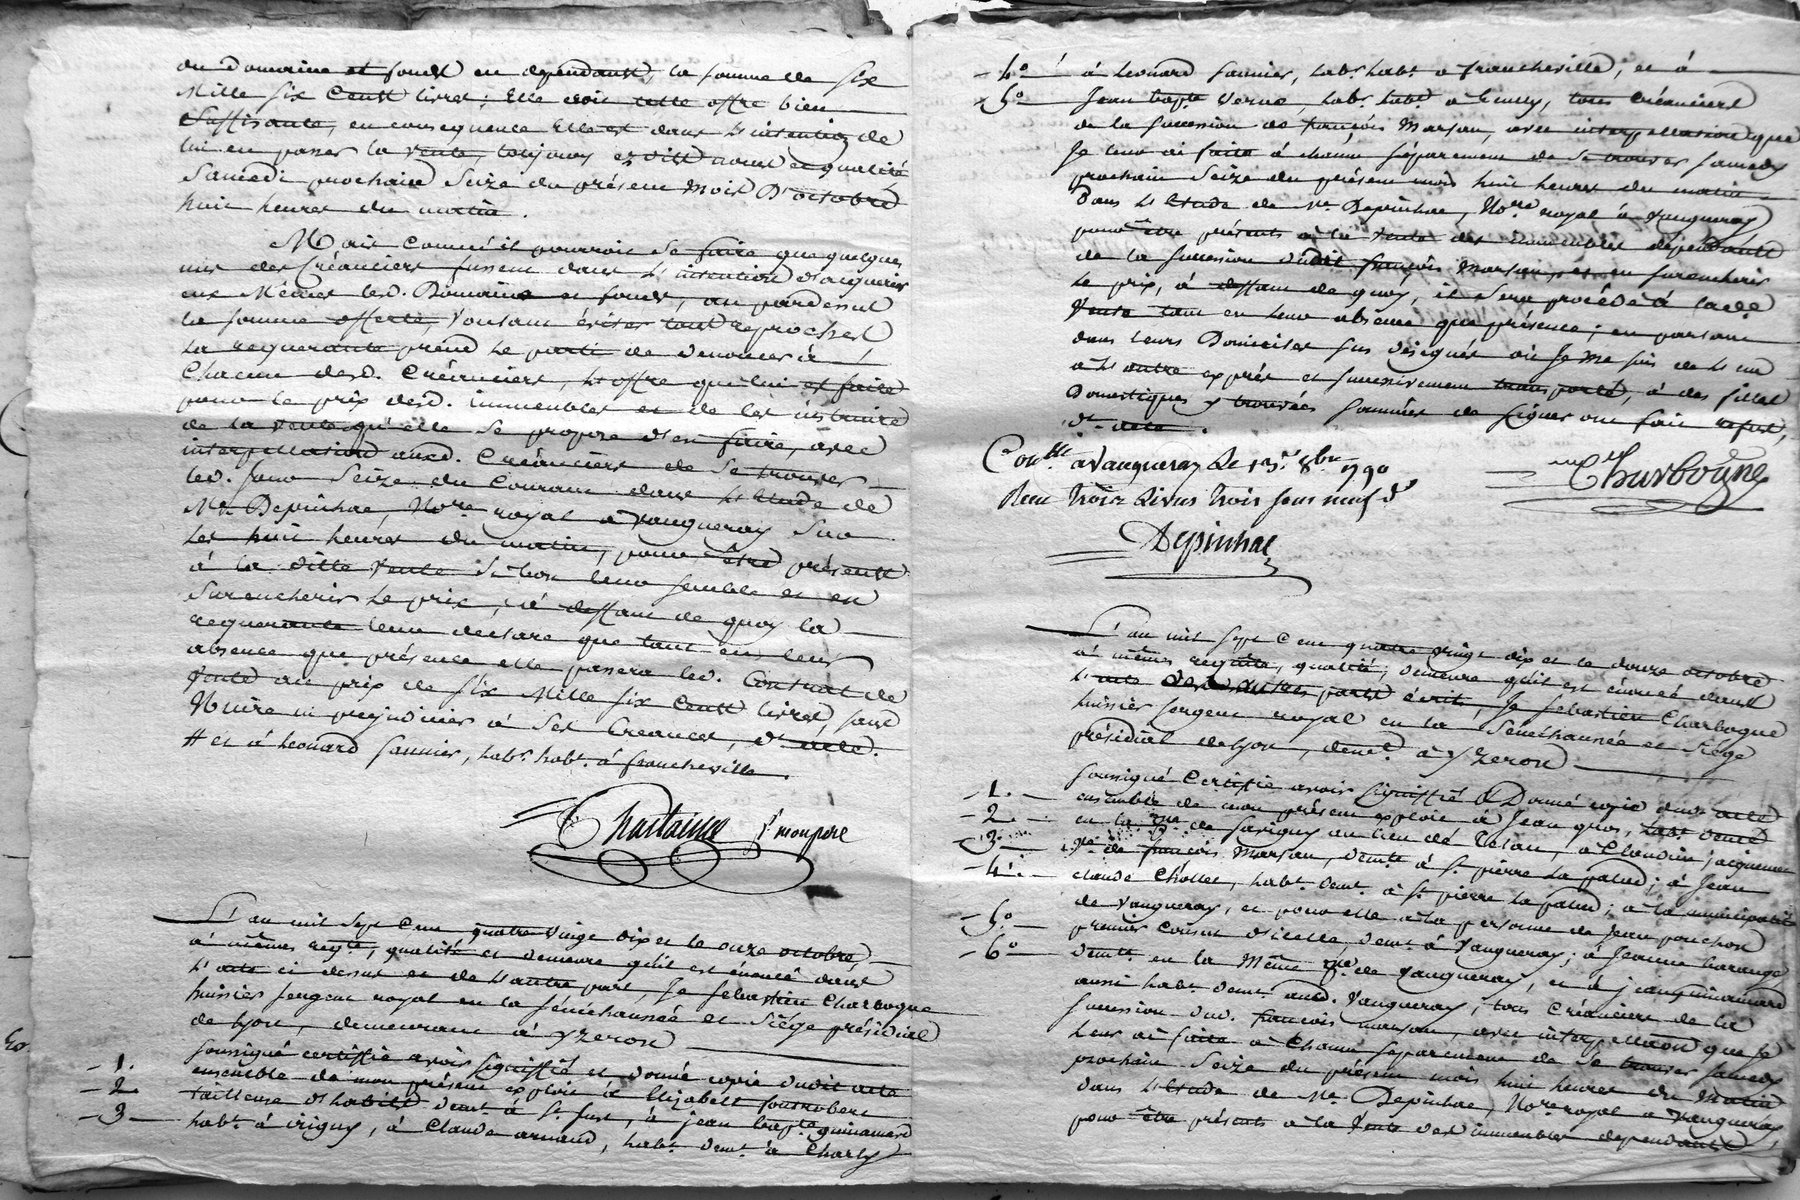 du Domaine et fonds en dependants, la somme de six
Mille six Cents livres; Elle croit cette offre bien
suffisante, en consequence Elle est dans L'intention de
lui en passer la vente, toujours esdits noms et qualité
Samedi prochain Seize du présent mois D'octobre
huit heures du matin.
Mais comme il pourroit se faire que quelques
uns des Créanciers fussent dans L'intention d'acquerir
eux Mêmes lesd. Domaine et fonds, au pardessus
la somme offerte, voulant éviter tout reproches
La requerante prend Le parti de denoncer à
Chacun desd. Créanciers, L'offre qui lui est faite
pour le prix desd. immeubles et de les instruire
de la vente qu'elle se propose d'en faire, avec
interpellation auxd. Créanciers de se trouver
led. jour Seize du Courant dans L'Etude de
Me. Depinhac, Nore. royal à Vaugneray sur
Les huit heures du matin, pour être présents
à la ditte vente si bon leur semble et en
Surencherir Le prix, à deffaut de quoy la
requerante leur déclare que tant en leur
absence que présence elle passera led. Contrat de
Vente au prix de six Mille six Cents livres, sans
Nuire ni prejudicier à ses Creances, dt. acte.
# et à Leonard saunier, labr. habt. à francheville.
Chastaing pr. mon pere
L'an mil sept Cent quatre vingt dix et le onze octobre,
à mêmes reqte., qualité et demeure qu'il est énoncé dans
L'acte ci dessus et de L'autre part, Je sebastien Charbogne
huissier sergent royal en la sénéchaussée et Siége présidial
de Lyon, demeurant à yzeron
soussigné certiffie avoir signiffié et donné copie dudit acte
- 1. ensemble de mon présent exploit à Elizabeth
- 2. tailleuse d'habits demt. à St. just, à jean bapte. guinamard
- 3 habt. à irigny, à Claude arnaud, habt. demt. à Charly
- 4° à Leonard saunier, labr. habt. à francheville, et à
- 5° Jean bapte. Verne, labr. habt. à , tous créanciers
de la succession de françois Marsan, avec interpellation que
Je leur ai faite à chacun séparement de se trouver samedy
prochain Seize du présent mois huit heures du matin
Dans L'étude de Me. Depinhac, Nore. royal à Vaugneray
pour être présents à la vente des immeubles dépendants
de la succession dudit françois Marsan, et en surencherir
Le prix, à deffaut de quoy, il sera procédé à lade.
Vente tant en leur absence que présence; en parlant
dans leurs Domiciles sus désignés où Je me suis de L'un
à L'autre exprès et successivement transporté, à des filles
Domestiques y trouvées sommées de signer ont fait refus,
dt. acte.
Charbogne
Conlle. a Vaugneray Le 13. 8bre 1790
Recu trois Livres trois sous neuf d.
Depinhac
L'an mil sept Cent quatre vingt dix et le douze octobre
à mêmes requête, qualité, demeure qu'il est énoncé dans
L'acte des autres parts écrit, Je sébastien Charbogne
huissier sergent royal en la Sénéchaussée et Siége
présidial de Lyon, demt. à yzeron
soussigné Certiffie avoir signiffié & Donné copie dud. acte
- 1. ensemble de mon présent exploit à Jean gros, habt. demt.
- 2. en la de savigny au lieu de , à Claudine jacquemet
- 3. ve. de françois Marsan, demte. à St. pierre La palud; à Jean
- 4. claude Chollet, habt. demt. à St. pierre la palud; à la municipalité
de Vaugneray, et pour elle à la personne de Jean ponchon
- 5° premier consul d'icelle, demt. à Vaugneray; à Jeanne barange
- 6° demte. en la Même pse. de Vaugneray, et à jean guinamard
aussi habt. demt. aud. Vaugneray, tous Créanciers de la
succession dud. françois marsan, avec interpellation que Je
leur ai faite à Chacun separement de se trouver samedy
prochain Seize du présent mois huit heures du Matin
dans L'étude de Me. Depinhac, Nore. royal à Vaugneray,
pour être présents à la Vente des immeubles dependants